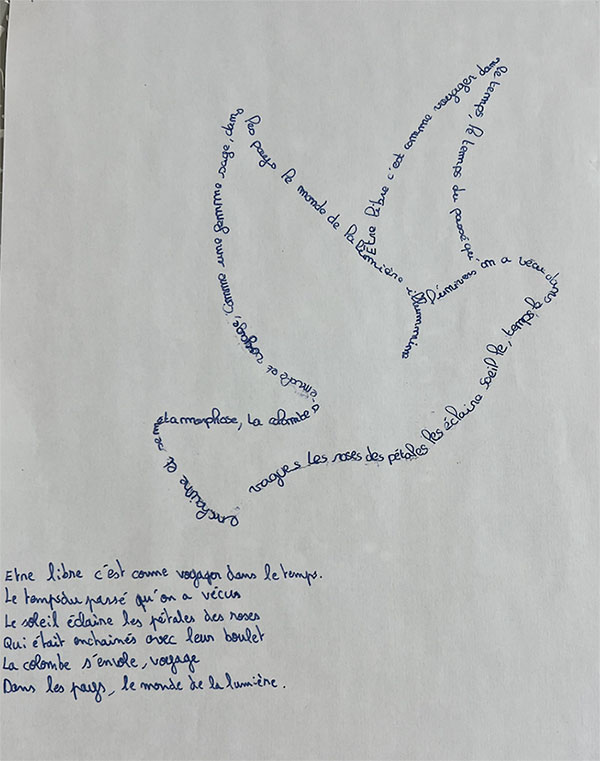 Etre libre c'est comme voyager dans
le temps, le temps du passé qu'
on a vécu
les pays le monde de la lumière
l'univers
temps le, soleil éclaire les pétales des roses Les vagues
enchainé et se
métamorphose, La colombe
voyage, comme une femme sage, dans
Etre libre c'est comme voyager dans le temps.
Le temps du passé qu'on a vécus
Le soleil éclaire les pétales des roses
Qui était enchainés avec leur boulet
La colombe s'envole, voyage
Dans les pays, le monde de la lumière.